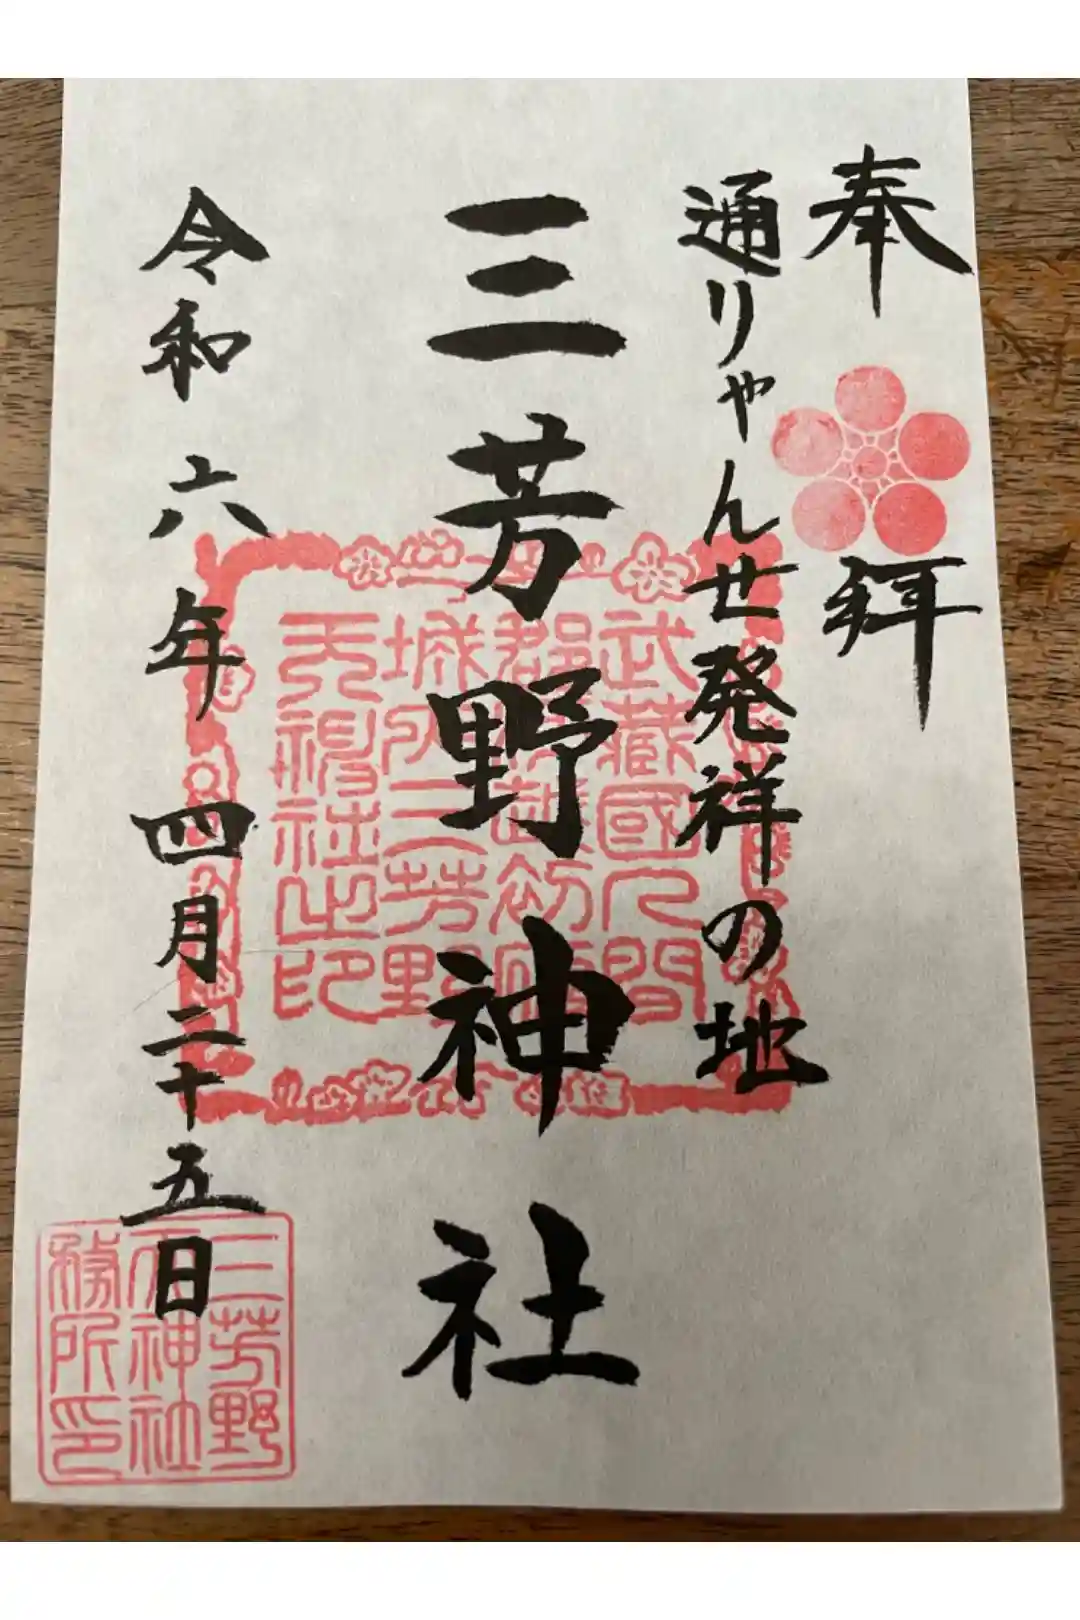 奉拝
通りゃんせ発祥の地
三芳野神社
令和六年四月二十五日
武蔵國入間
城内三芳野
天神社之印
三芳野
神社
務所印